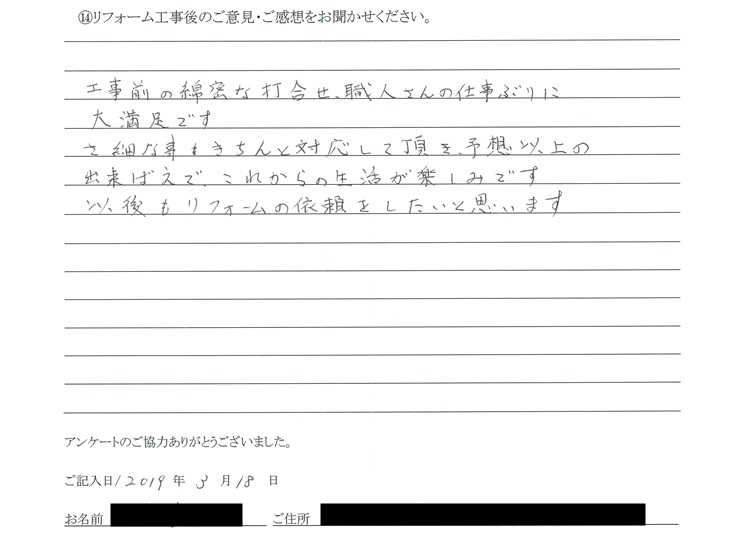 ⑭リフォーム工事後のご意見・ご感想をお聞かせください。
工事前の綿密な打合せ、職人さんの仕事ぶりに
大満足です
さ細な事もきちんと対応して頂き、予想以上の
出来ばえで、これからの生活が楽しみです
以後もリフォームの依頼をしたいと思います
アンケートのご協力ありがとうございました。
ご記入日/2019年3月18日
お名前 ご住所